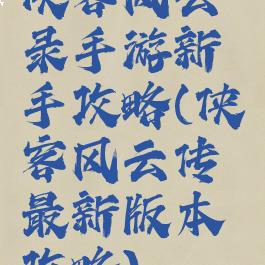 侠客风云
录手游新
手攻略(侠
客风云传
最新版本
攻略)